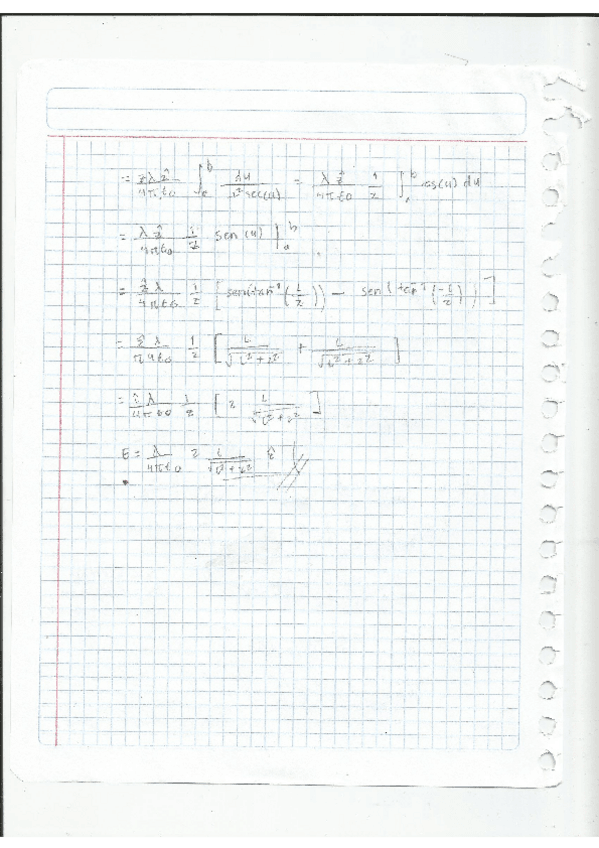 = zλẑ/4πε0 ∫_a^b du/z² sec(u) = λẑ/4πε0 1/z ∫_a^b cos(u) du
= λẑ/4πε0 1/z sen(u) |_a^b
= ẑλ/4πε0 1/z [sen(tan⁻¹(L/z)) − sen(tan⁻¹(-L/z))]
= ẑλ/π4ε0 1/z [L/√L²+z² + L/√L²+z²]
= ẑλ/4πε0 1/z [2 L/√L²+z²]
E = λ/4πε0 2 L/√L²+z² ẑ